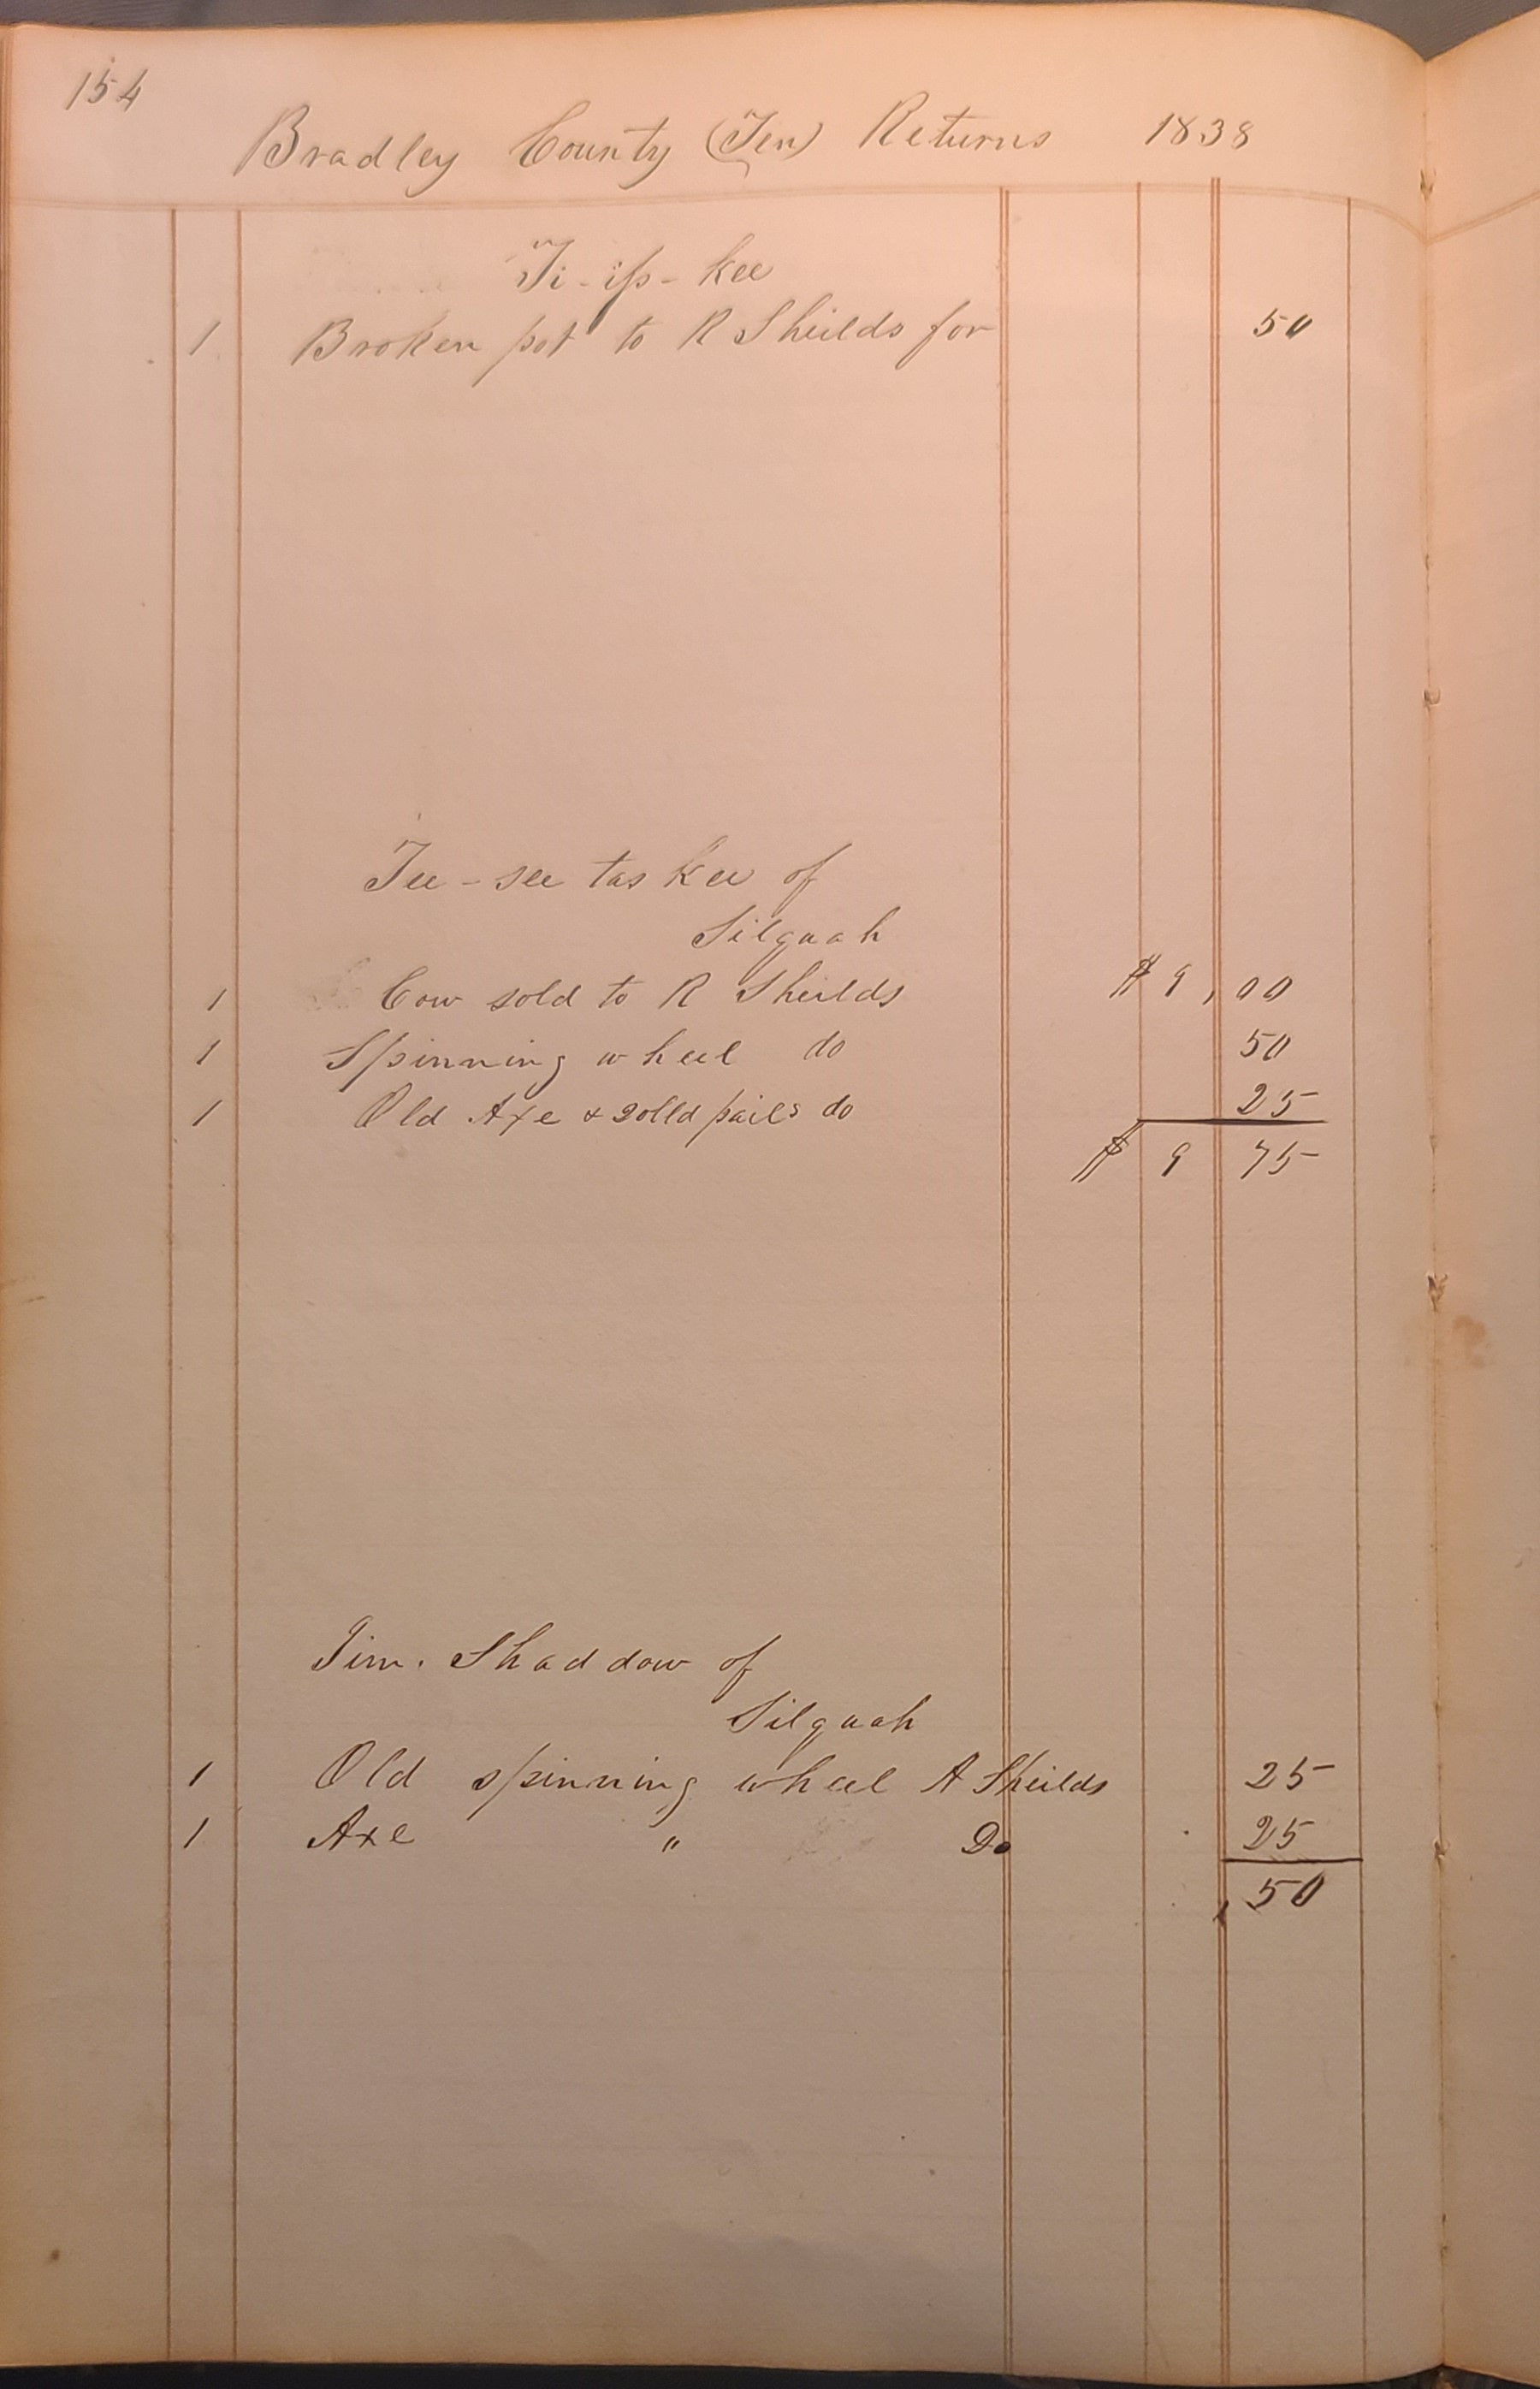 154
Bradley County (Ten) Returns 1838
Ti-iss-kee
1 Broken pot to R Sheilds for 50
Tee-see tas kee of
Silquah
1 Cow sold to R Sheilds $ 9,00
1 Spinning wheel do 50
1 Old Axe & 2 olld pails do 25
$ 9 75
Jim. Shaddow of
Silquah
1 Old spinning wheel A Sheilds 25
1 Axe " Do 25
50